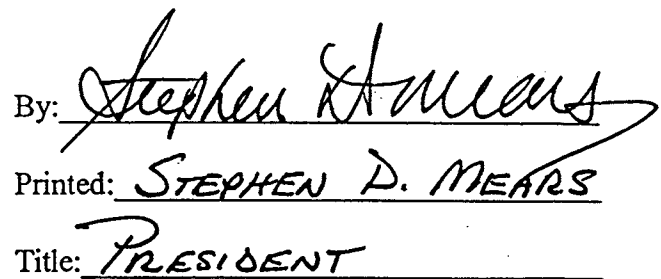 By: Stephen D. Mears
Printed: STEPHEN D. MEARS
Title: PRESIDENT